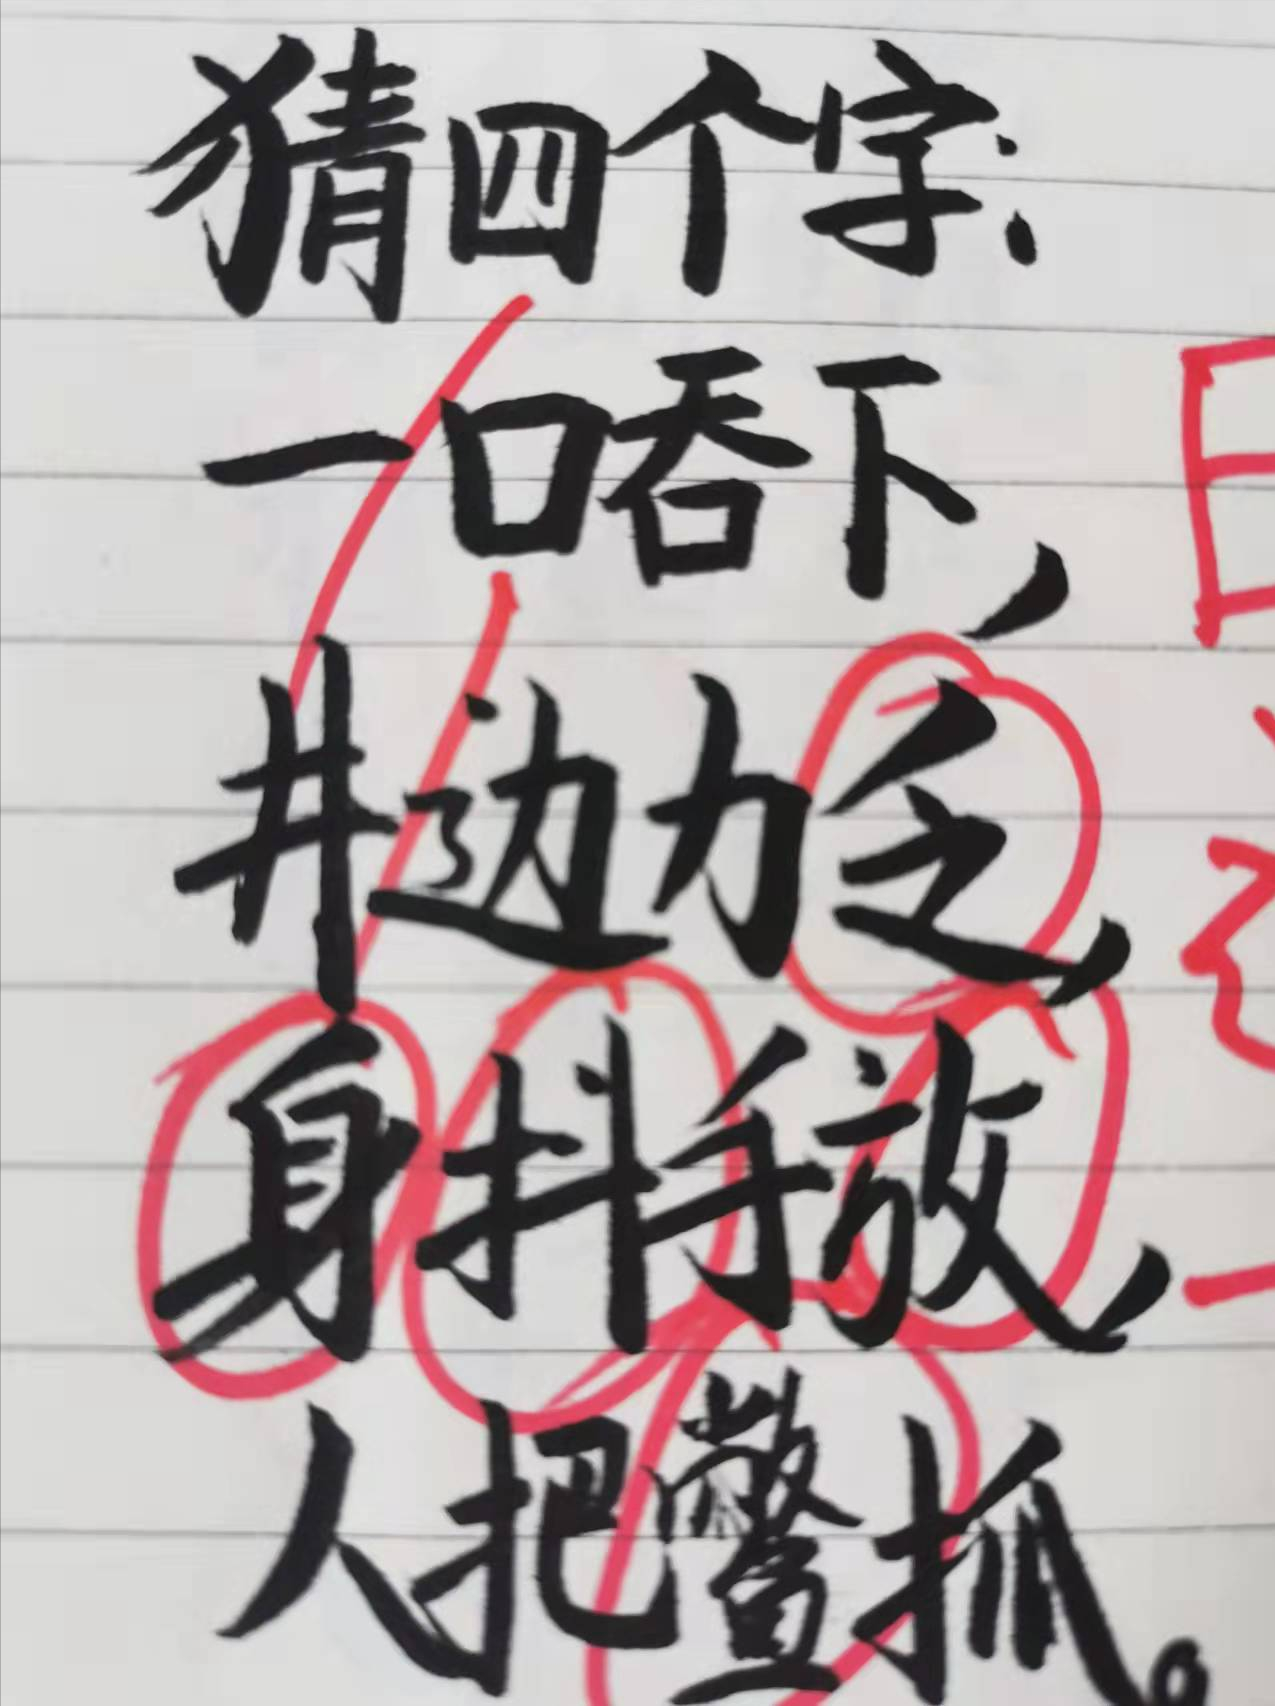 猜四个字:
一口吞下,
井边力乏,
身抖手放,
人把鳖抓。